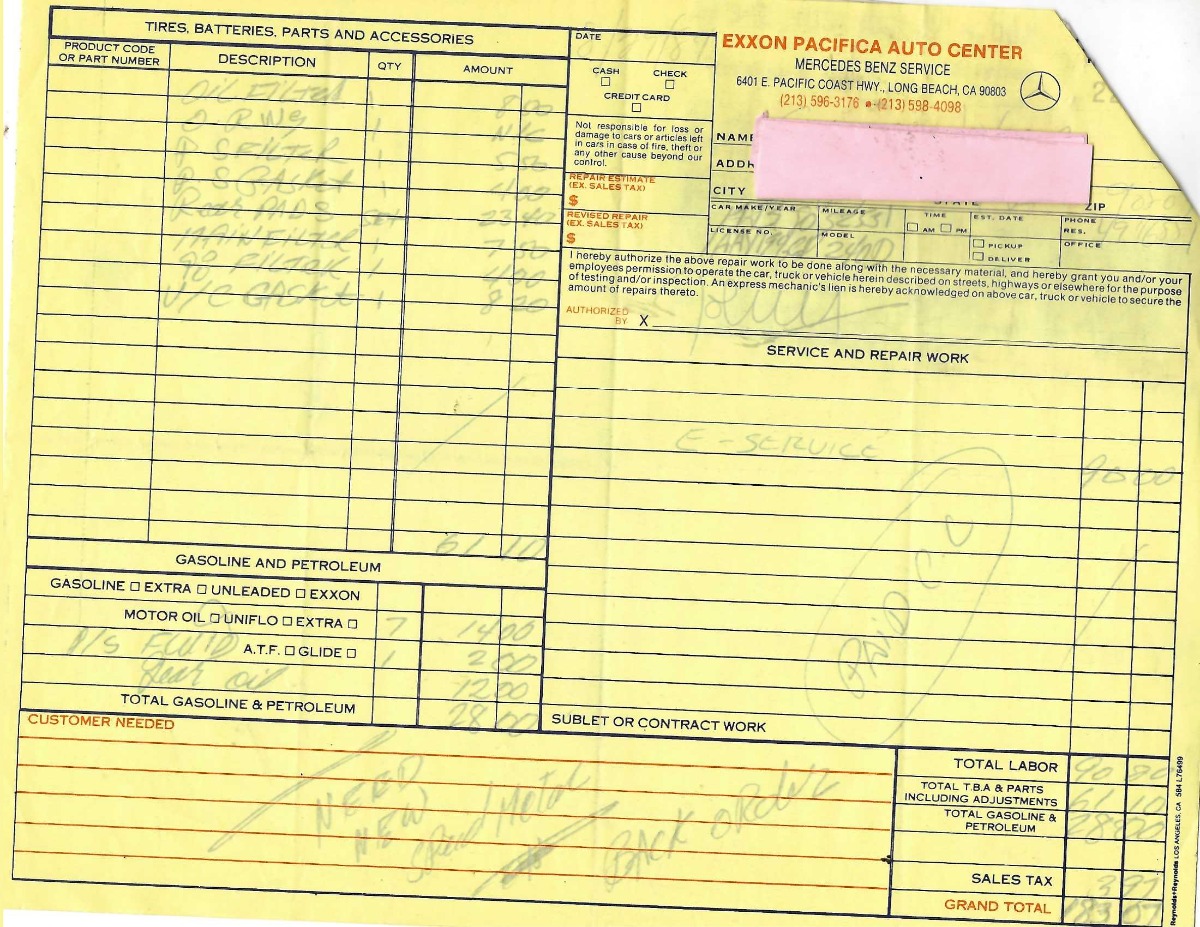 TIRES, BATTERIES, PARTS AND ACCESSORIES
PRODUCT CODE OR PART NUMBER DESCRIPTION QTY AMOUNT
OIL FILTER 1 8.00
O-RING 1 N/C
P S FILTER 1 5.50
P S GASKET 1 4.00
Rear PADS 23.40
MAIN FILTER 1 7.50
FILTER 1 4.00
V/C GASKET 1 8.20
61 10
GASOLINE AND PETROLEUM
GASOLINE □ EXTRA □ UNLEADED □ EXXON
MOTOR OIL □ UNIFLO □ EXTRA □ 7 14 00
P/S FLUID A.T.F. □ GLIDE □ 1 2 00
Gear oil 12 00
TOTAL GASOLINE & PETROLEUM 28 00
DATE
CASH □ CHECK □
CREDIT CARD □
Not responsible for loss or
damage to cars or articles left
in cars in case of fire, theft or
any other cause beyond our
control.
REPAIR ESTIMATE
(EX. SALES TAX)
$
REVISED REPAIR
(EX. SALES TAX)
$
EXXON PACIFICA AUTO CENTER
MERCEDES BENZ SERVICE
6401 E. PACIFIC COAST HWY., LONG BEACH, CA 90803
(213) 596-3176 • (213) 598-4098
NAME
ADDR
CITY STATE ZIP
CAR MAKE/YEAR MILEAGE TIME EST. DATE PHONE
□ AM □ PM RES.
LICENSE NO. MODEL □ PICKUP OFFICE
□ DELIVER
I hereby authorize the above repair work to be done along with the necessary material, and hereby grant you and/or your
employees permission to operate the car, truck or vehicle herein described on streets, highways or elsewhere for the purpose
of testing and/or inspection. An express mechanic's lien is hereby acknowledged on above car, truck or vehicle to secure the
amount of repairs thereto.
AUTHORIZED
BY X
SERVICE AND REPAIR WORK
E-SERVICE 90 00
PAID C.C
SUBLET OR CONTRACT WORK
CUSTOMER NEEDED
NEED
NEW
BACK ORDER
TOTAL LABOR 90 00
TOTAL T.B.A & PARTS
INCLUDING ADJUSTMENTS 61 10
TOTAL GASOLINE &
PETROLEUM 28 00
SALES TAX 3 97
GRAND TOTAL 183 07
Reynolds+Reynolds LOS ANGELES, CA 5B4 L76499